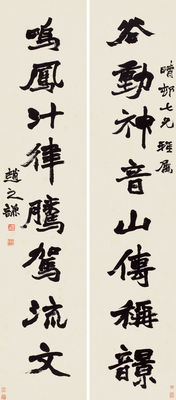 谷動神音山傳稱
晴邨七兄雅屬
鳴鳳汁律騰駕流文
趙之謙